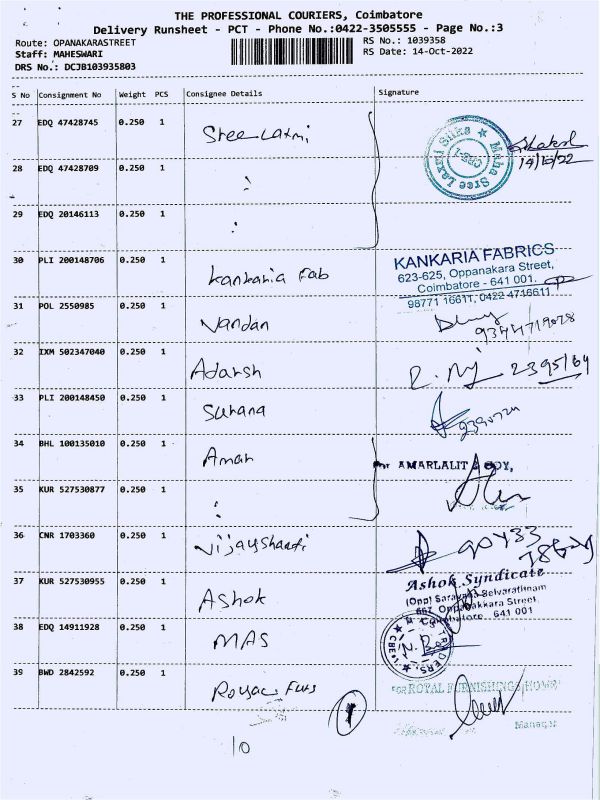 THE PROFESSIONAL COURIERS, Coimbatore
Delivery Runsheet - PCT - Phone No.:0422-3505555 - Page No.:3
Route: OPANAKARASTREET RS No.: 1039358
Staff: MAHESWARI RS Date: 14-Oct-2022
DRS No.: DCJB103935803
S No Consignment No Weight PCS Consignee Details Signature
27 EDQ 47428745 0.250 1 Sree Laxmi
Maha Sree Laxmi Silks
CBE-1
14/10/22
28 EDQ 47428709 0.250 1 :
29 EDQ 20146113 0.250 1 :
30 PLI 200148706 0.250 1 Kankaria Fab
KANKARIA FABRICS
623-625, Oppanakara Street,
Coimbatore - 641 001.
98771 16611, 0422 4716611
31 POL 2550985 0.250 1 Nandan
32 IXM 502347040 0.250 1 Adarsh
33 PLI 200148450 0.250 1 Surana
34 BHL 100135010 0.250 1 Amar
For AMARLALIT & COY,
35 KUR 527530877 0.250 1 :
36 CNR 1703360 0.250 1 Vijayshanti
37 KUR 527530955 0.250 1 Ashok
Ashok Syndicate
(Opp) Saravana Selvarathnam
667, Oppanakkara Street,
Coimbatore. 641 001
38 EDQ 14911928 0.250 1 MAS
MAS TRADERS
CBE-1
39 BWD 2842592 0.250 1 Royal Furs
For ROYAL FURNISHINGS (HOME)
Manager
1
10